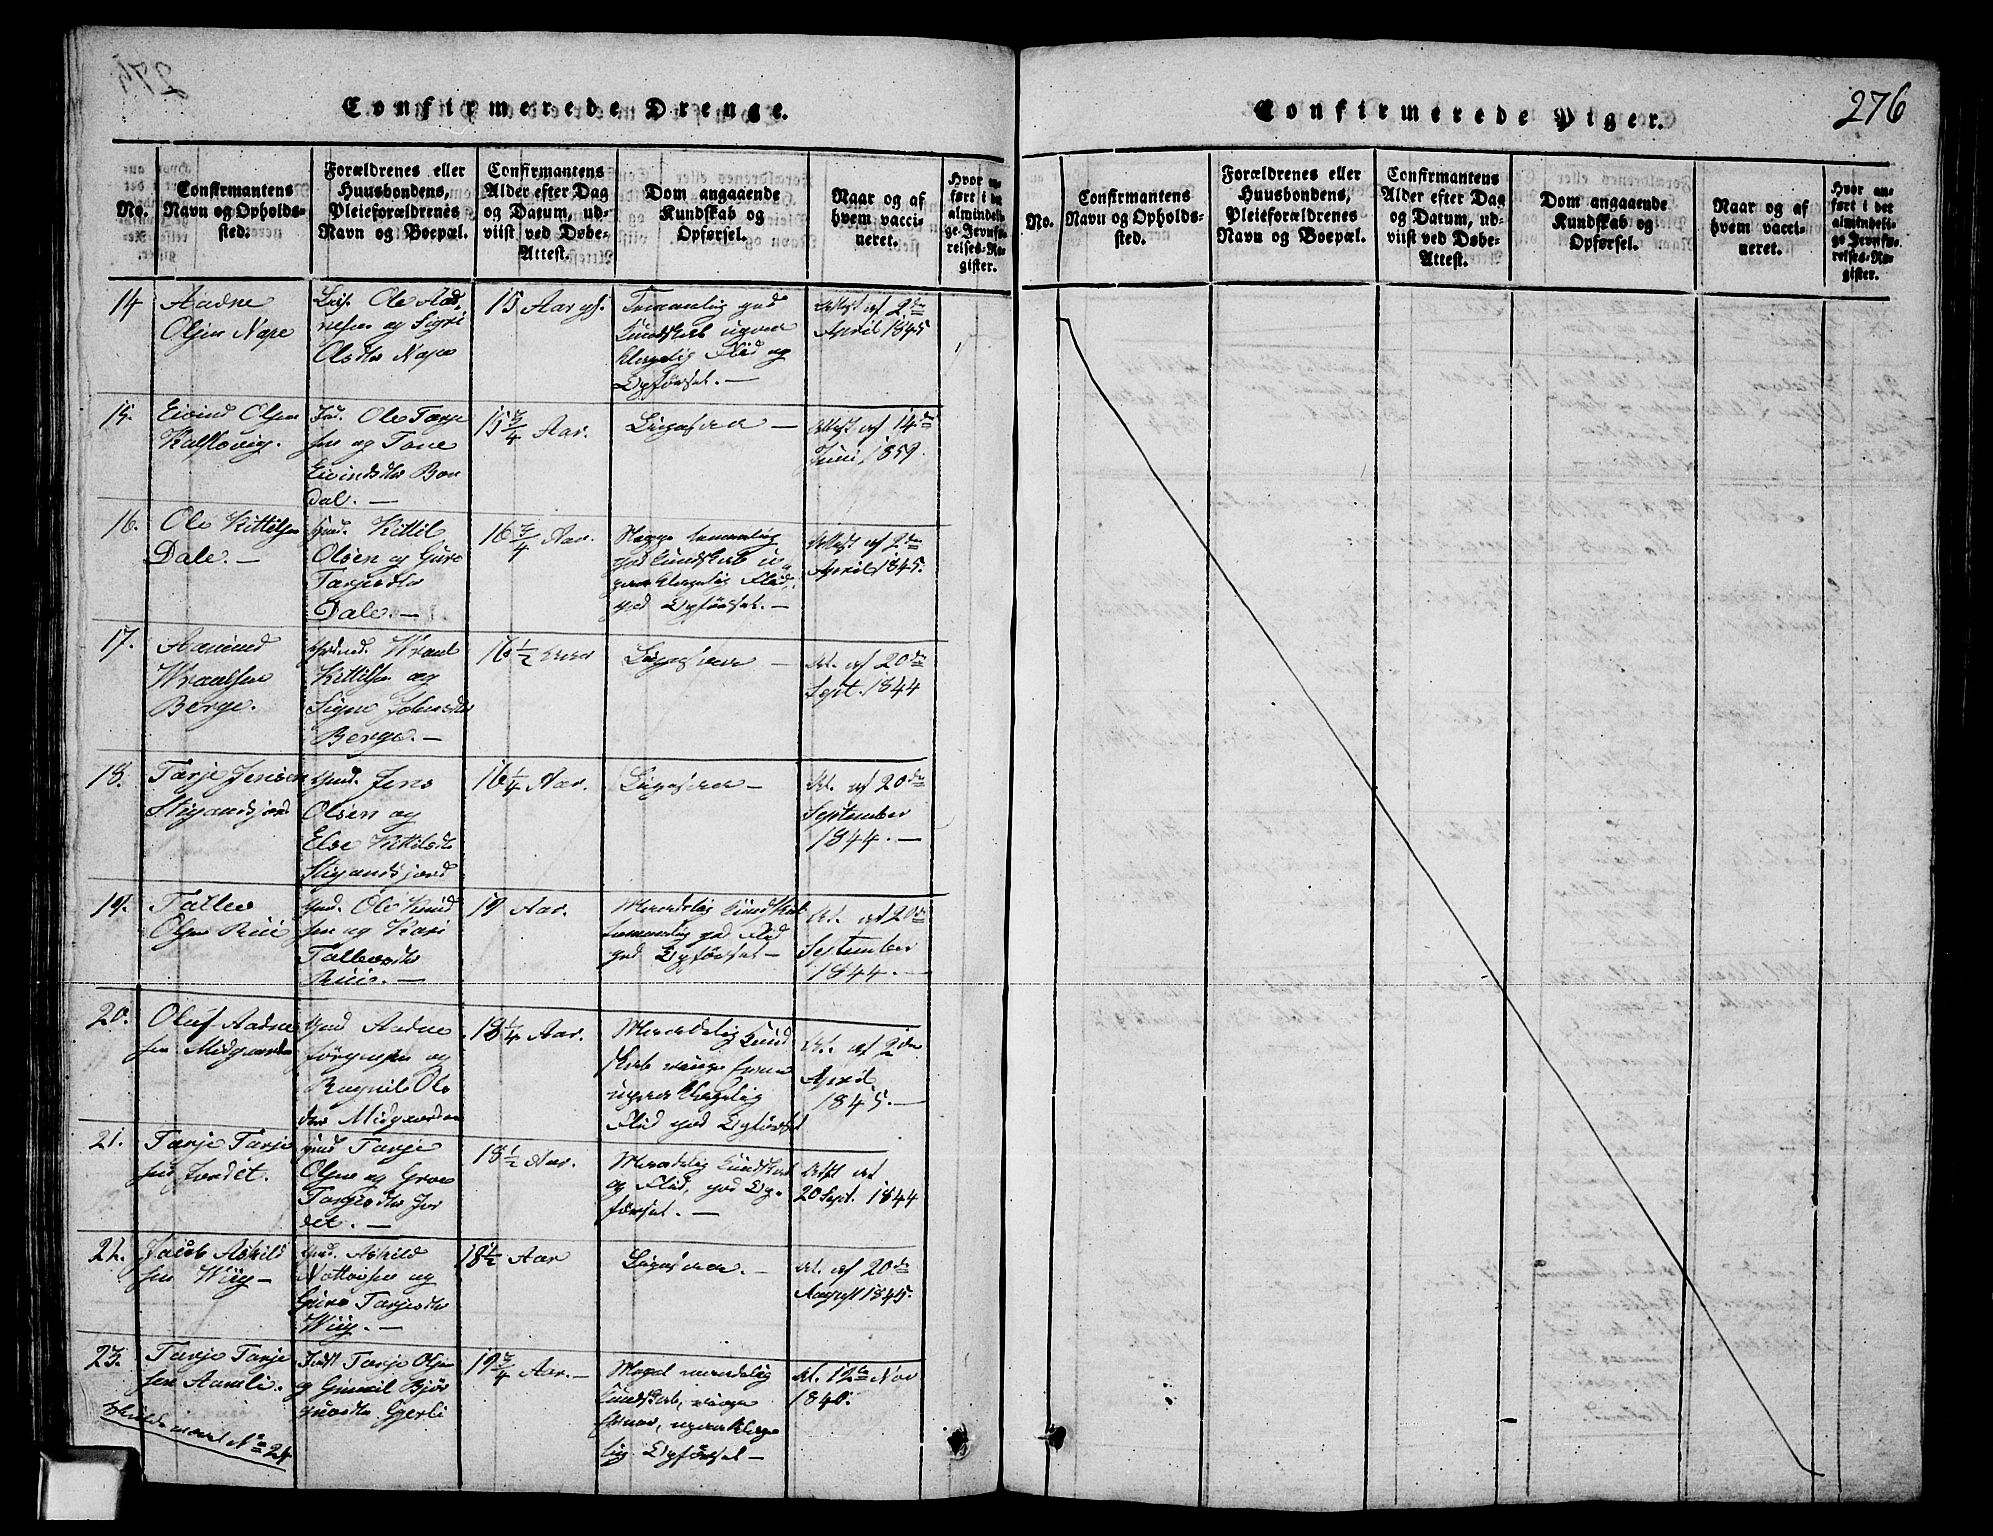 Confirmerede Drenge.
No.
Confirmantens
Navn og Opholds-
sted.
Forældrenes eller
Huusbondens,
Pleieforældrenes
Navn og Boepæl.
Confirmantens
Alder efter Dag
og Datum, ud-
viist ved Døbe-
Attest.
Dom angaaende
Kundskab og
Opførsel.
Naar og af
hvem vacci-
neret.
Hvor an-
ført i det
almindeli-
ge Jevnfø-
relses-Re-
gister.
14
Aadne
Olsen Nape
Ole Aad-
nesen og Sigri
Olsdtr Nape
15 Aar
Temmelig god
Kundskab
Flid og
Opførsel. —
Attest af 2den
April 1845
15.
Eivind Olsen
Kalkovig.
Ole Tarje
sen og Tone
Eivindsdtr Bon
dal. —
15 3/4 Aar.
Ligesaa —
Attest af 14de
Juni 1859.
16.
Ole Kittilsen
Dale. —
Gmd. Kittil
Olsen og Guro
Tarjesdtr
Dale. —
16 3/4 Aar.
temmelig
god Kundskab u-
paaklagelig Flid,
god Opførsel. —
Attest af 2den
April 1845.
17.
Aamund
Wraalsen
Berge.
Wraal
Kittilsen og
Signe Johnsdtr
Berge. —
16 1/2 Aar
Ligesaa —
At. af 20de
Sept. 1844
18.
Tarje Jensen
Stigandsjord
Gmd. Jens
Olsen og
Else Kittilsdtr
Stigandsjord
16 1/4 Aar.
Ligesaa —
At. af 20de
September
1844. —
19.
Tallev
Olsen Riis
Gmd. Ole Knud
sen og Kari
Tallevsdtr
Riis. —
19 Aar.
Maadelig Kundskab
temmelig god Flid
god Opførsel —
At. af 20de
September
1844. —
20.
Oluf Aadne
sen Midgaarden
Gmd Aadne
Jørgensen og
Ragnil Ols
dtr Midgaarden
18 1/4 Aar.
Maadelig Kund
skab ringe Evne
upaaklagelig
Flid god Opførsel
At. af 2den
April
1845. —
21.
Tarje Tarje
sen Jordet.
Gmd Tarje
Olsen og Groe
Tarjesdtr Jor
det. —
18 1/2 Aar.
Maadelig Kundskab
og Flid, god Op-
førsel. —
Att af
20 Sept. 1844
22.
Jacob Askild
sen Wiig —
Gmd. Askild
og
Guro Tarjesdtr
Wiig. —
18 1/2 Aar
Ligesaa. —
At. af 20de
August 1845.
23.
Tarje Tarje
sen Aamli.
Tarje Olsen
og Gunnil Bjør
Gjerli
19 3/4 Aar. —
Meget maadelig
Kundskab, ringe
Evner, upaaklage
lig Opførsel —
At. 12te Nov
1840.
No 24
276
Confirmerede Piger.
No.
Confirmantens
Navn og Opholds-
sted.
Forældrenes eller
Huusbondens,
Pleieforældrenes
Navn og Boepæl.
Confirmantens
Alder efter Dag
og Datum, ud-
viist ved Døbe-
Attest.
Dom angaaende
Kundskab og
Opførsel.
Naar og af
hvem vacci-
neret.
Hvor an-
ført i det
almindeli-
ge Jevnfø-
relses-Re-
gister.